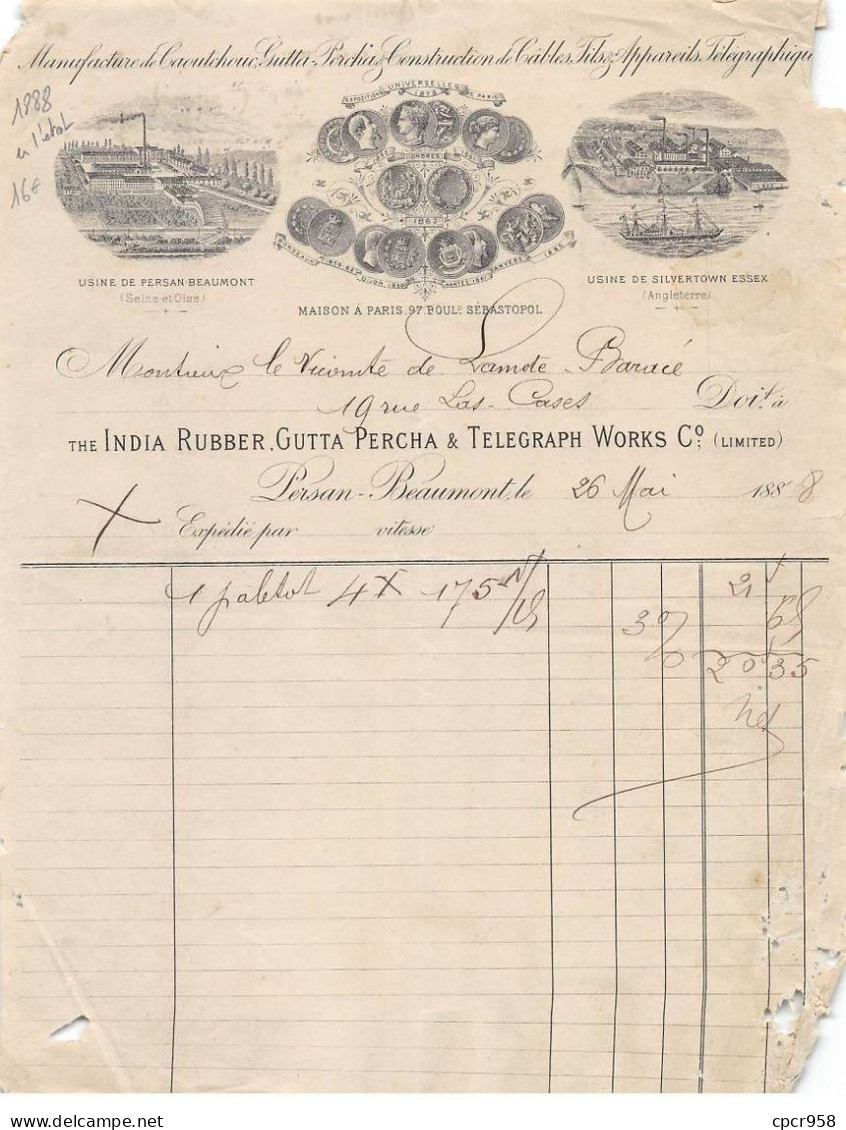 Manufacture de Caoutchouc, Gutta-Percha & Construction de Câbles, Fils & Appareils Télégraphiqu
1888
en l'état
16€
EXPOSITIONS UNIVERSELLES DE PARIS
1878
LONDRES
1862
BORDEAUX
DIJON
NANTES 1861
ANVERS
1885
USINE DE PERSAN-BEAUMONT
(Seine et Oise)
USINE DE SILVERTOWN ESSEX
(Angleterre)
MAISON À PARIS, 97, BOULD SÉBASTOPOL
Monsieur le Vicomte de Lamote-Baracé
19 rue Las-Cases Doit à
THE INDIA RUBBER, GUTTA PERCHA & TELEGRAPH WORKS CO. (LIMITED)
Persan-Beaumont, le 26 Mai 1888
Expédié par vitesse
1 paletot 4X 175 21
3%
20 35
Net
cpcr958